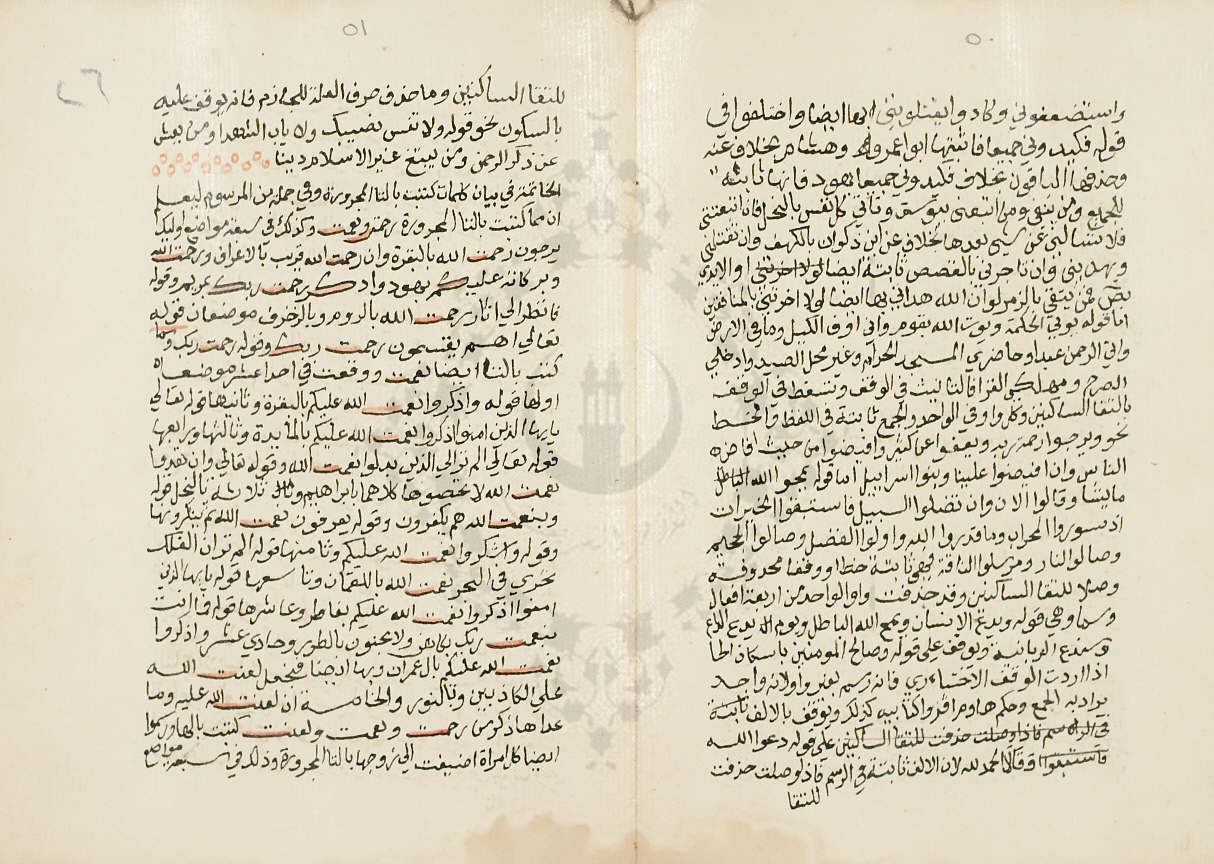 ٥٠
واستضعفوني وكادوا يقتلونني انها ايضا واختلفوا في
قوله فكيدوني جميعا فاثبتها ابو عمرو وهشام بخلاف عنه
وحذفها الباقون بخلاف فكيدوني جميعا بهود فانها ثابتة
للجميع ومن اتبعني بيوسف وتاتي كل نفس بالنحل فان اتبعتني
فلا تسالني عن شي بعدها بخلاف عن ابن ذكوان بالكهف وان تقتلني
ويهديني وان تاجرني بالقصص ثابتة ايضا لولا اخرتني او الايدي
افمن يتقي بالزمر لو ان الله هداني بها ايضا لولا اخرتني بالمنافقين
اما قوله يوتي الحكمة ويوت الله بقوم واني اوف الكيل وما في الارض
واتي الرحمن عبدا وحاضري المسجد الحرام وغير محلي الصيد وادخلي
الصرح ومهلكي القرا فالثابت في الوقف وتسقط في الوقف
بالتقا الساكنين وكل واو في الواحد والجمع ثابتة في اللفظ والخط
نحو ويرجوا رحمة ربه ويعفوا عن كثير وافيضوا من حيث افاض
الناس وان افيضوا علينا وبنوا اسراييل اما قوله يمحوا الله الباطل
ما يشا وقالوا الان وان تضلوا السبيل فاستبقوا الخيرات
اذ تسوروا المحراب وما قدروا الله واولوا الفضل وصالوا الجحيم
وصالوا النار ومرسلوا الناقة فهي ثابتة خطا ووقفا محذوفة
وصلا للتقا الساكنين وقد حذفت واو الواحد من اربعة افعال
وسما وهي قوله ويدع الانسان ويمح الله الباطل ويوم يدع الداع
وسندع الزبانية ويوقف على قوله وصالح المومنين باسكان الحا
اذا اردت الوقف الاختياري فانه رسم بغير واو لانه واحد
يراد به الجمع وحكم هاوم اقروا كتابيه كذلك ويوقف بالالف ثابتة
في الرسم فاذا وصلت حذفت للتقا الساكنين على قوله دعوا الله
فاستبقوا وقالا الحمد لله لان الالف ثابتة في الرسم فاذا وصلت حذفت
للتقا
٥١
٢٦
للتقا الساكنين وما حذف حرف العلة للجازم فانه يوقف عليه
بالسكون نحو قوله ولا تنس نصيبك ولا ياب الشهدا ومن يعش
عن ذكر الرحمن ومن يبتغ غير الاسلام دينا
الخاتمة في بيان كلمات كتبت بالتا المجرورة وفي جملة من المرسوم ليعلم
ان مما كتبت بالتا المجرورة رحمت ونعمت وكذلك في سبعة مواضع اوليك
يرجون رحمت الله بالبقرة وان رحمت الله قريب بالاعراف ورحمت الله
وبركاته عليكم بهود وذكر رحمت ربك بمريم وقوله
فانظر الى اثار رحمت الله بالروم وبالزخرف موضعان قوله
تعالى اهم يقسمون رحمت ربك وقوله رحمت ربك ومما
كتب بالتا ايضا نعمت ووقعت في احدا عشر موضعا
اولها قوله واذكروا نعمت الله عليكم بالبقرة وثانيها قوله تعالى
يايها الذين امنوا اذكروا نعمت الله عليكم بالمايدة وثالثها ورابعها
قوله تعالى الم تر الى الذين بدلوا نعمت الله وقوله تعالى وان تعدوا
نعمت الله لا تحصوها كلاهما بابراهيم وثلاثة بالنحل قوله
وبنعمت الله هم يكفرون وقوله يعرفون نعمت الله ثم ينكرونها
وقوله واشكروا نعمت الله عليكم وثامنها قوله الم تر ان الفلك
تجري في البحر بنعمت الله بالقمان وتاسعها قوله يايها الذين
امنوا اذكروا نعمت الله عليكم بفاطر وعاشرها قوله فما انت
بنعمت ربك بكاهن ولا مجنون بالطور وحادي عشر واذكروا
نعمت الله عليكم بال عمران وبها ايضا فنجعل لعنت الله
على الكاذبين وبالنور والخامسة ان لعنت الله عليه وما
عداها ذكر من رحمت ونعمت ولعنت كتبت بالها ورسموا
ايضا كل امراة اضيفت الى زوجها بالتا المجرورة وذلك في سبعة مواضع